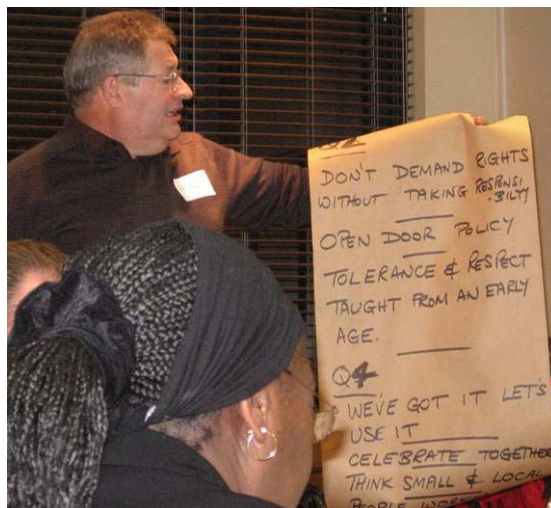 Q2
DON'T DEMAND RIGHTS
WITHOUT TAKING RESPONSI
-BILTY
OPEN DOOR POLICY
TOLERANCE & RESPECT
TAUGHT FROM AN EARLY
AGE.
Q4
WE'VE GOT IT LET'S
USE IT
CELEBRATE TOGETHER
THINK SMALL & LOCAL
PEOPLE